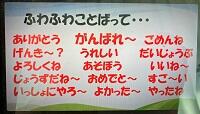 ふわふわことばって・・・
ありがとう がんばれ～ ごめんね
げんき～？ うれしい だいじょうぶ
よろしくね あそぼう いいね～
じょうずだね～ おめでと～ すご～い
いっしょにやろ～ よかった～ やったね